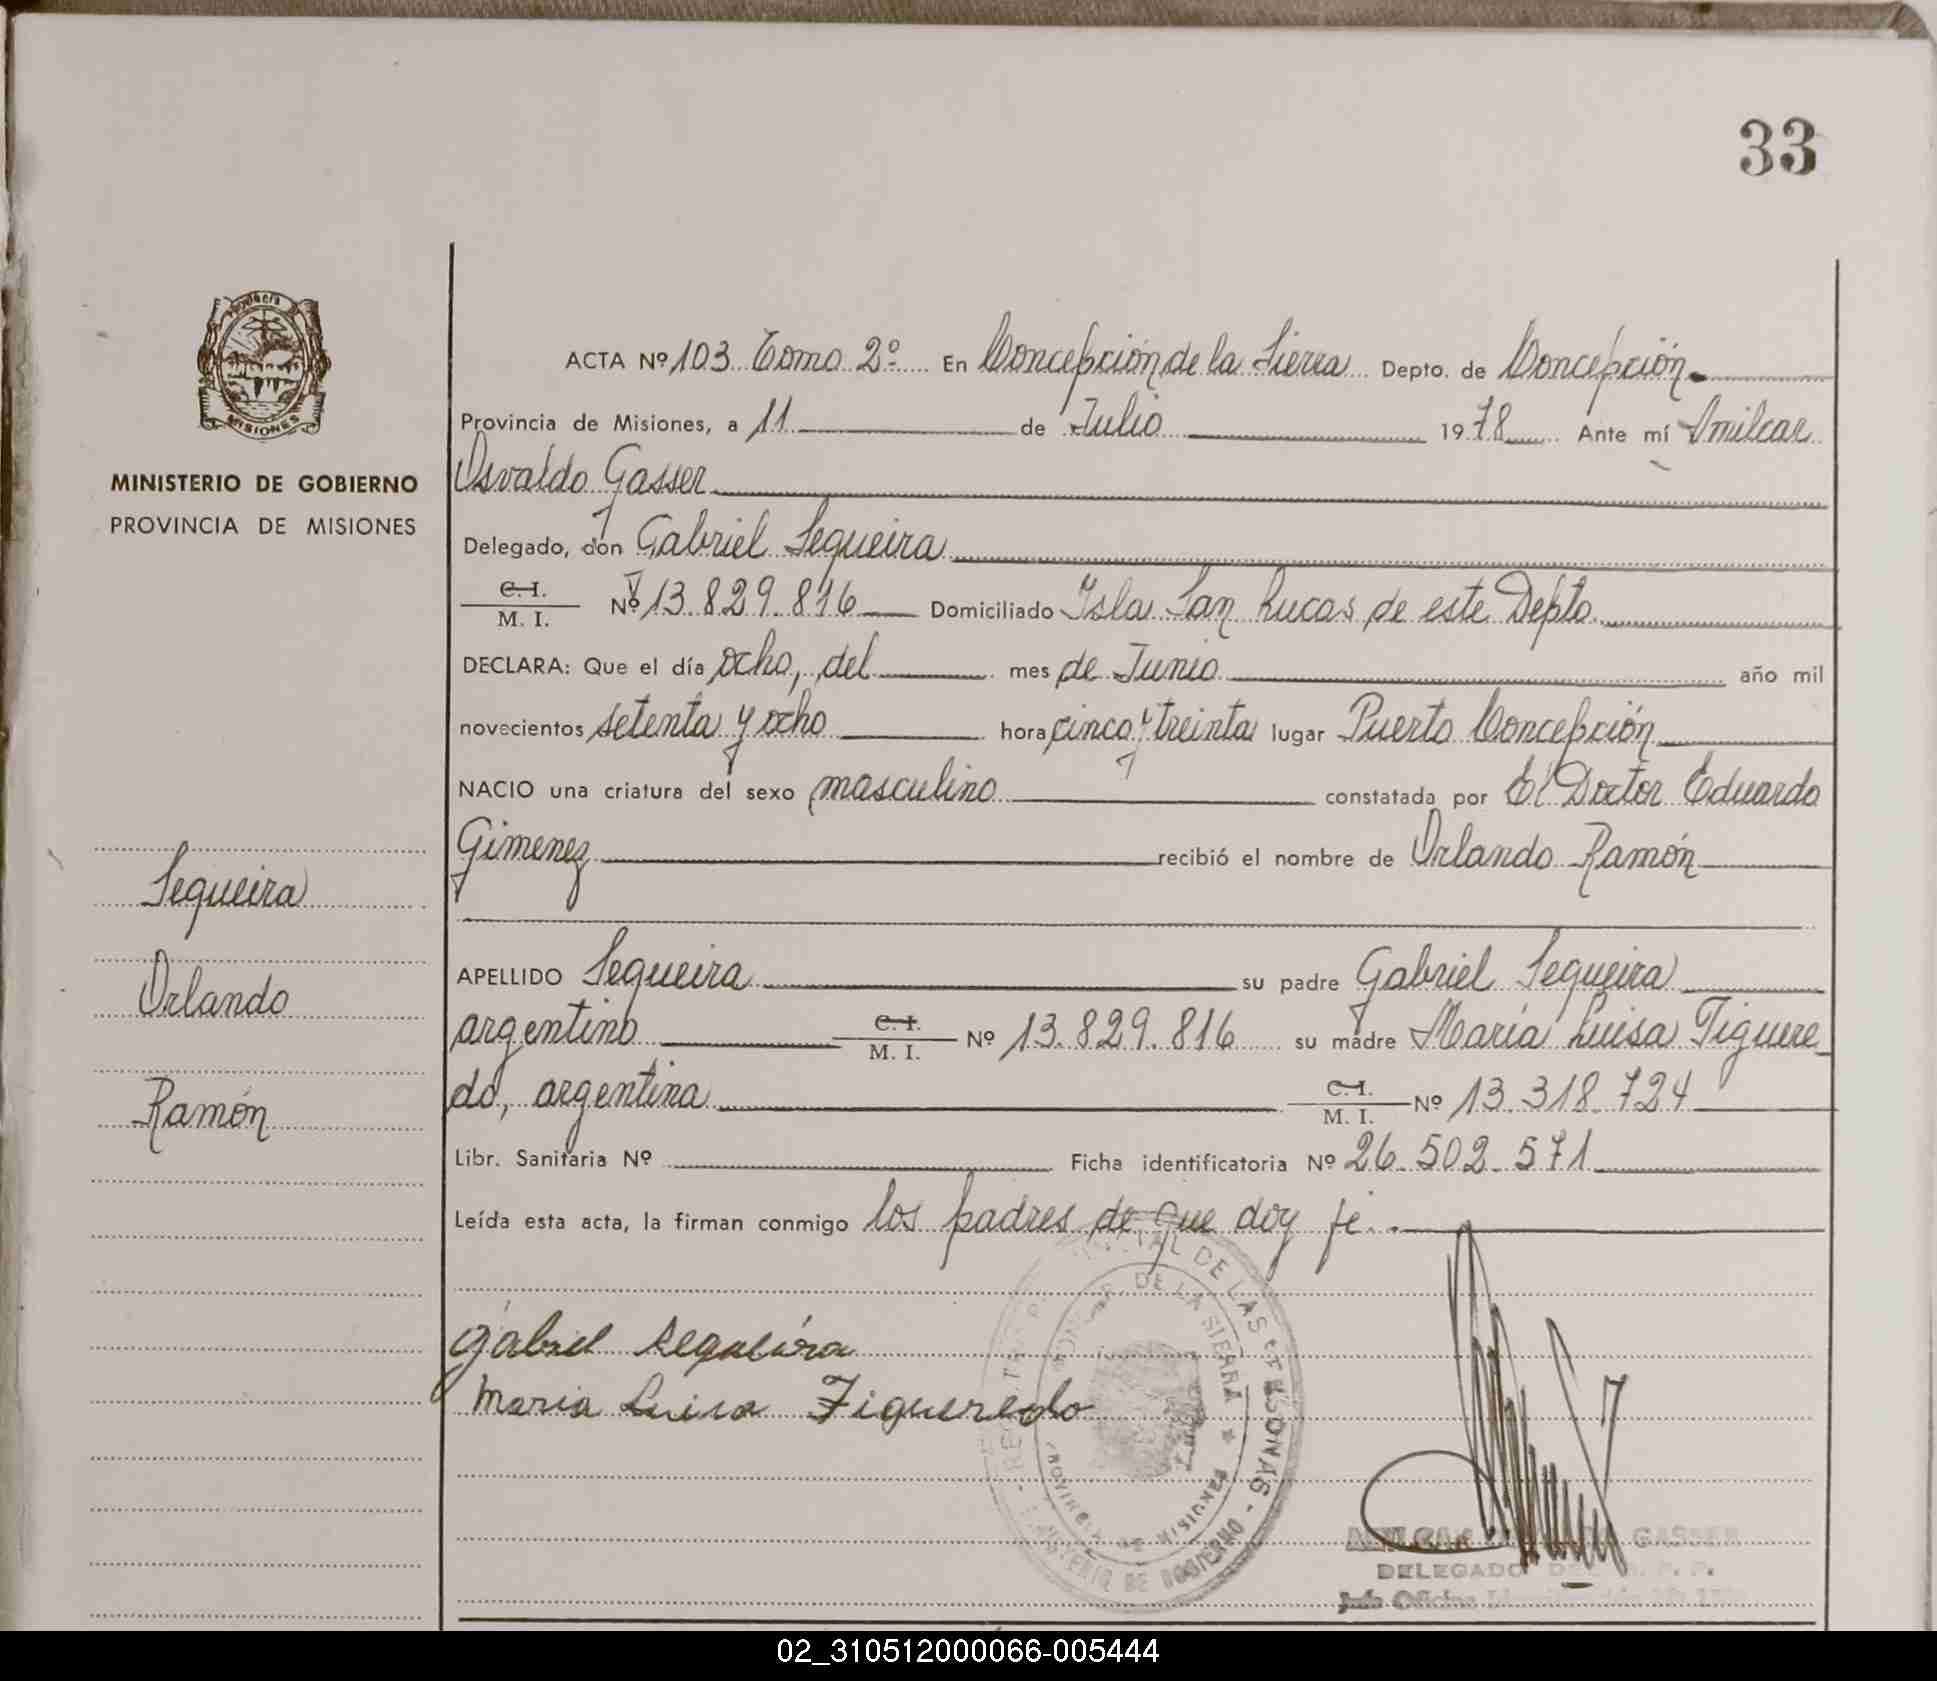 33
MISIONES
MINISTERIO DE GOBIERNO
PROVINCIA DE MISIONES
Sequeira
Orlando
Ramón
ACTA Nº 103 Tomo 2º En Concepción de la Sierra Depto. de Concepción
Provincia de Misiones, a 11 de Julio 1978 Ante mí Amilcar
Osvaldo Gasser
Delegado, don Gabriel Sequeira
C. I.
M. I. Nº 13.829.816 Domiciliado Isla San Lucas de este Depto.
DECLARA: Que el día ocho, del mes de Junio año mil
novecientos setenta y ocho hora cinco y treinta lugar Puerto Concepción
NACIO una criatura del sexo masculino constatada por El Doctor Eduardo
Gimenez recibió el nombre de Orlando Ramón
APELLIDO Sequeira su padre Gabriel Sequeira
argentino C. I. M. I. Nº 13.829.816 su madre María Luisa Figuere-
do, argentina C. I. M. I. Nº 13.318.724
Libr. Sanitaria Nº Ficha identificatoria Nº 26.502.571
Leída esta acta, la firman conmigo los padres de que doy fe.
Gabriel Sequeira
Maria Luisa Figueredo
DE LAS PERSONAS
DE LA SIERRA
PROVINCIA DE MISIONES
MINISTERIO DE GOBIERNO
GASSER
DELEGADO
Jefe Oficina
02_310512000066-005444